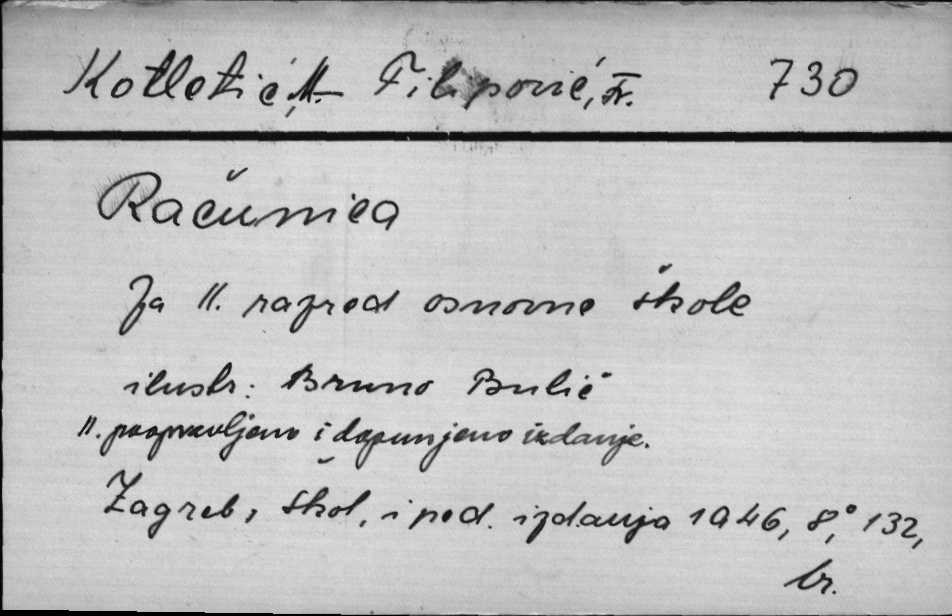 Kotletić, M. – Filipović, Fr. 730
Računica
Za II. razred osnovne škole
ilustr: Bruno Bulić
II. popravljeno i dopunjeno izdanje.
Zagreb, škol. i ped. izdanja 1946, 8°, 132,
br.